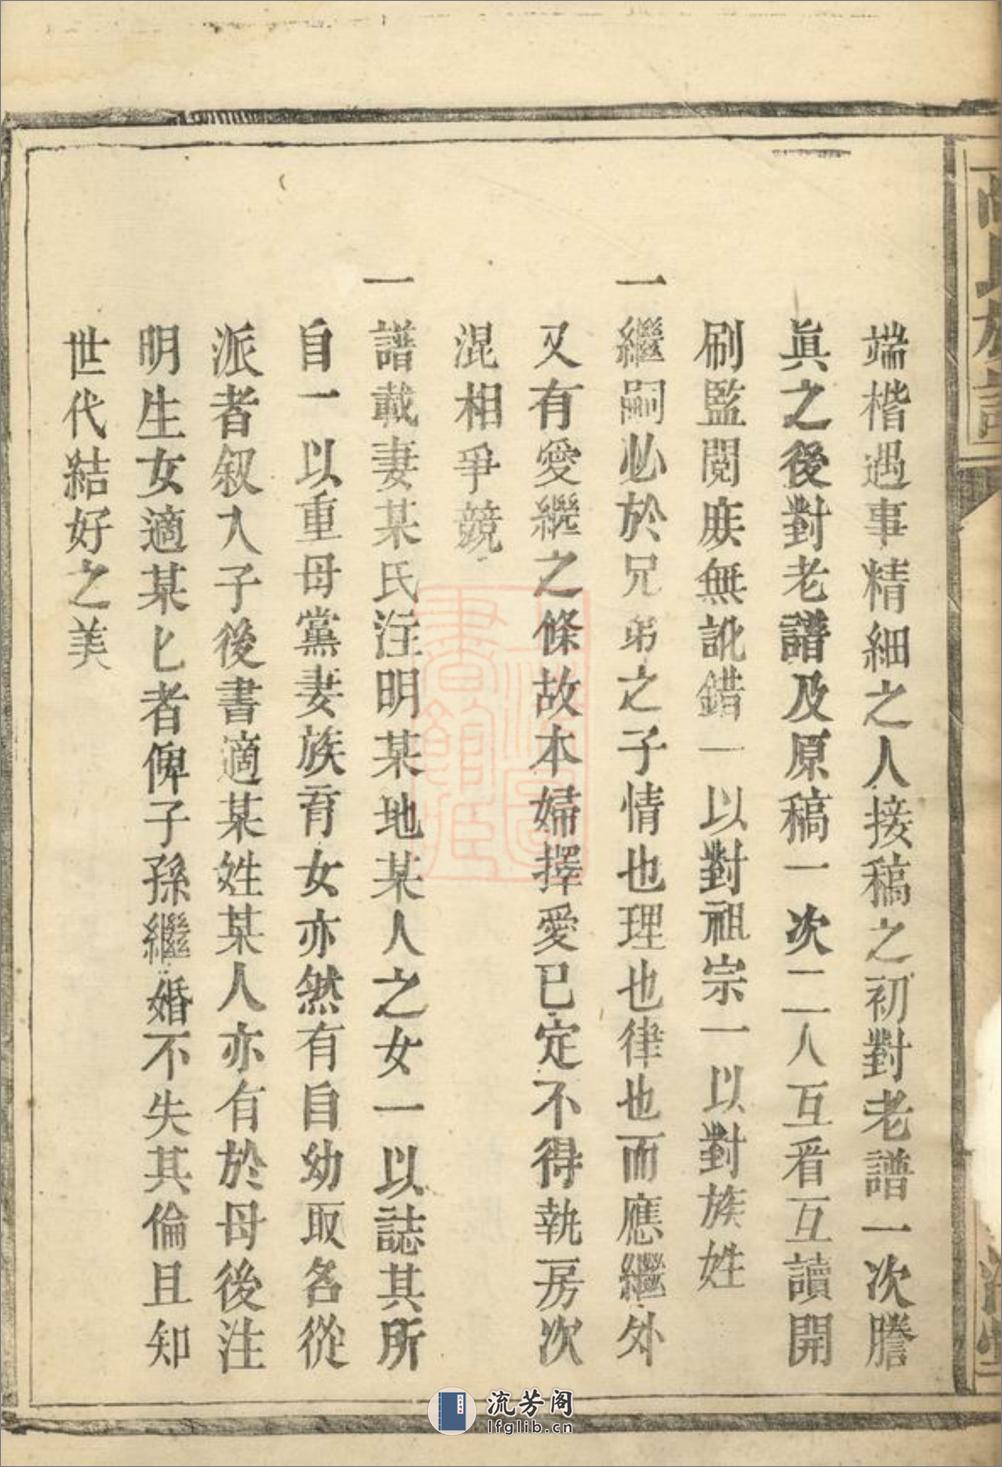 端楷遇事精細之人接稿之初對老譜一次謄
眞之後對老譜及原稿一次二人互看互讀開
刷監閱庶無訛錯一以對祖宗一以對族姓
一繼嗣必於兄弟之子情也理也律也而應繼外
又有愛繼之條故本婦擇愛已定不得執房次
混相爭競
一譜載妻某氏注明某地某人之女一以誌其所
自一以重母黨妻族育女亦然有自幼取名從
派者叙入子後書適某姓某人亦有於母後注
明生女適某匕者俾子孫繼婚不失其倫且知
世代結好之美
流芳阁
lfglib.cn